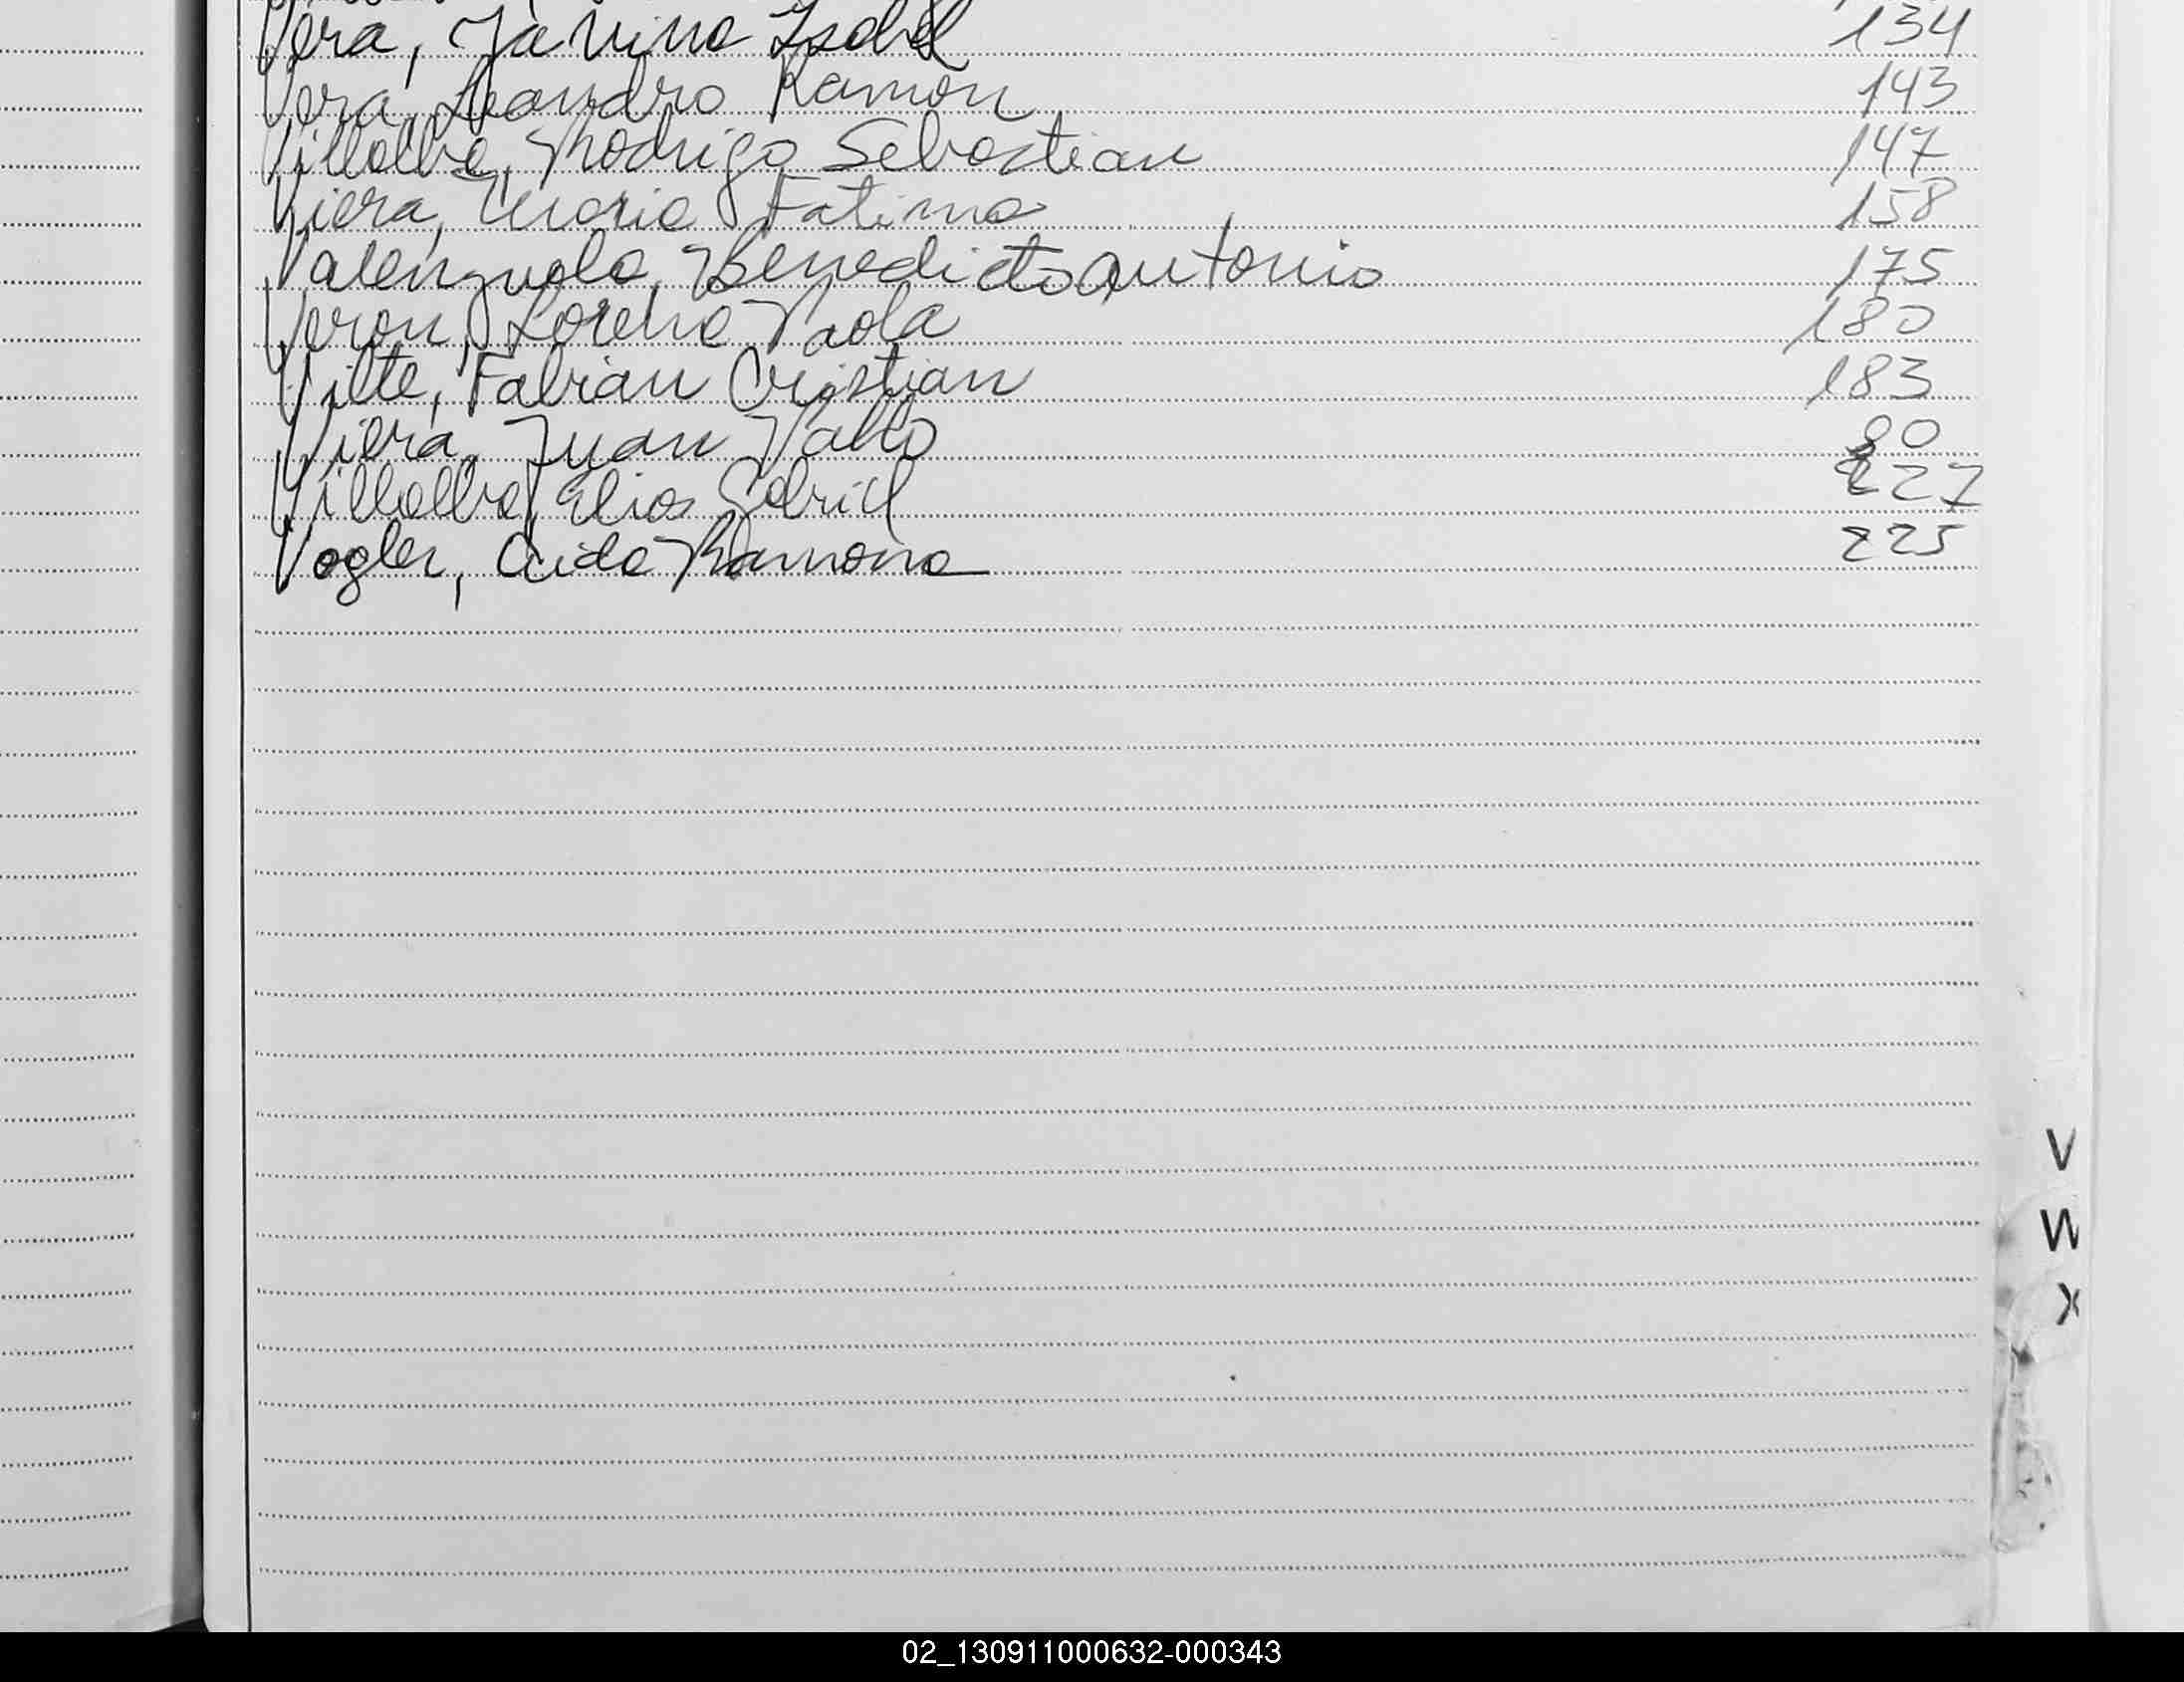 Vera, Yanina Isabel 134
Vera, Leandro Ramon 143
Villalba, Rodrigo Sebastian 147
Viera, Maria Fatima 158
Valenzuela, Benedicto Antonio 175
Veron, Lorena Paola 180
Vilte, Fabian Cristian 183
Viera, Juan Pablo 80
Villalba, Elias Gabriel 227
Vogler, Aida Ramona 225
V
W
X
02_130911000632-000343